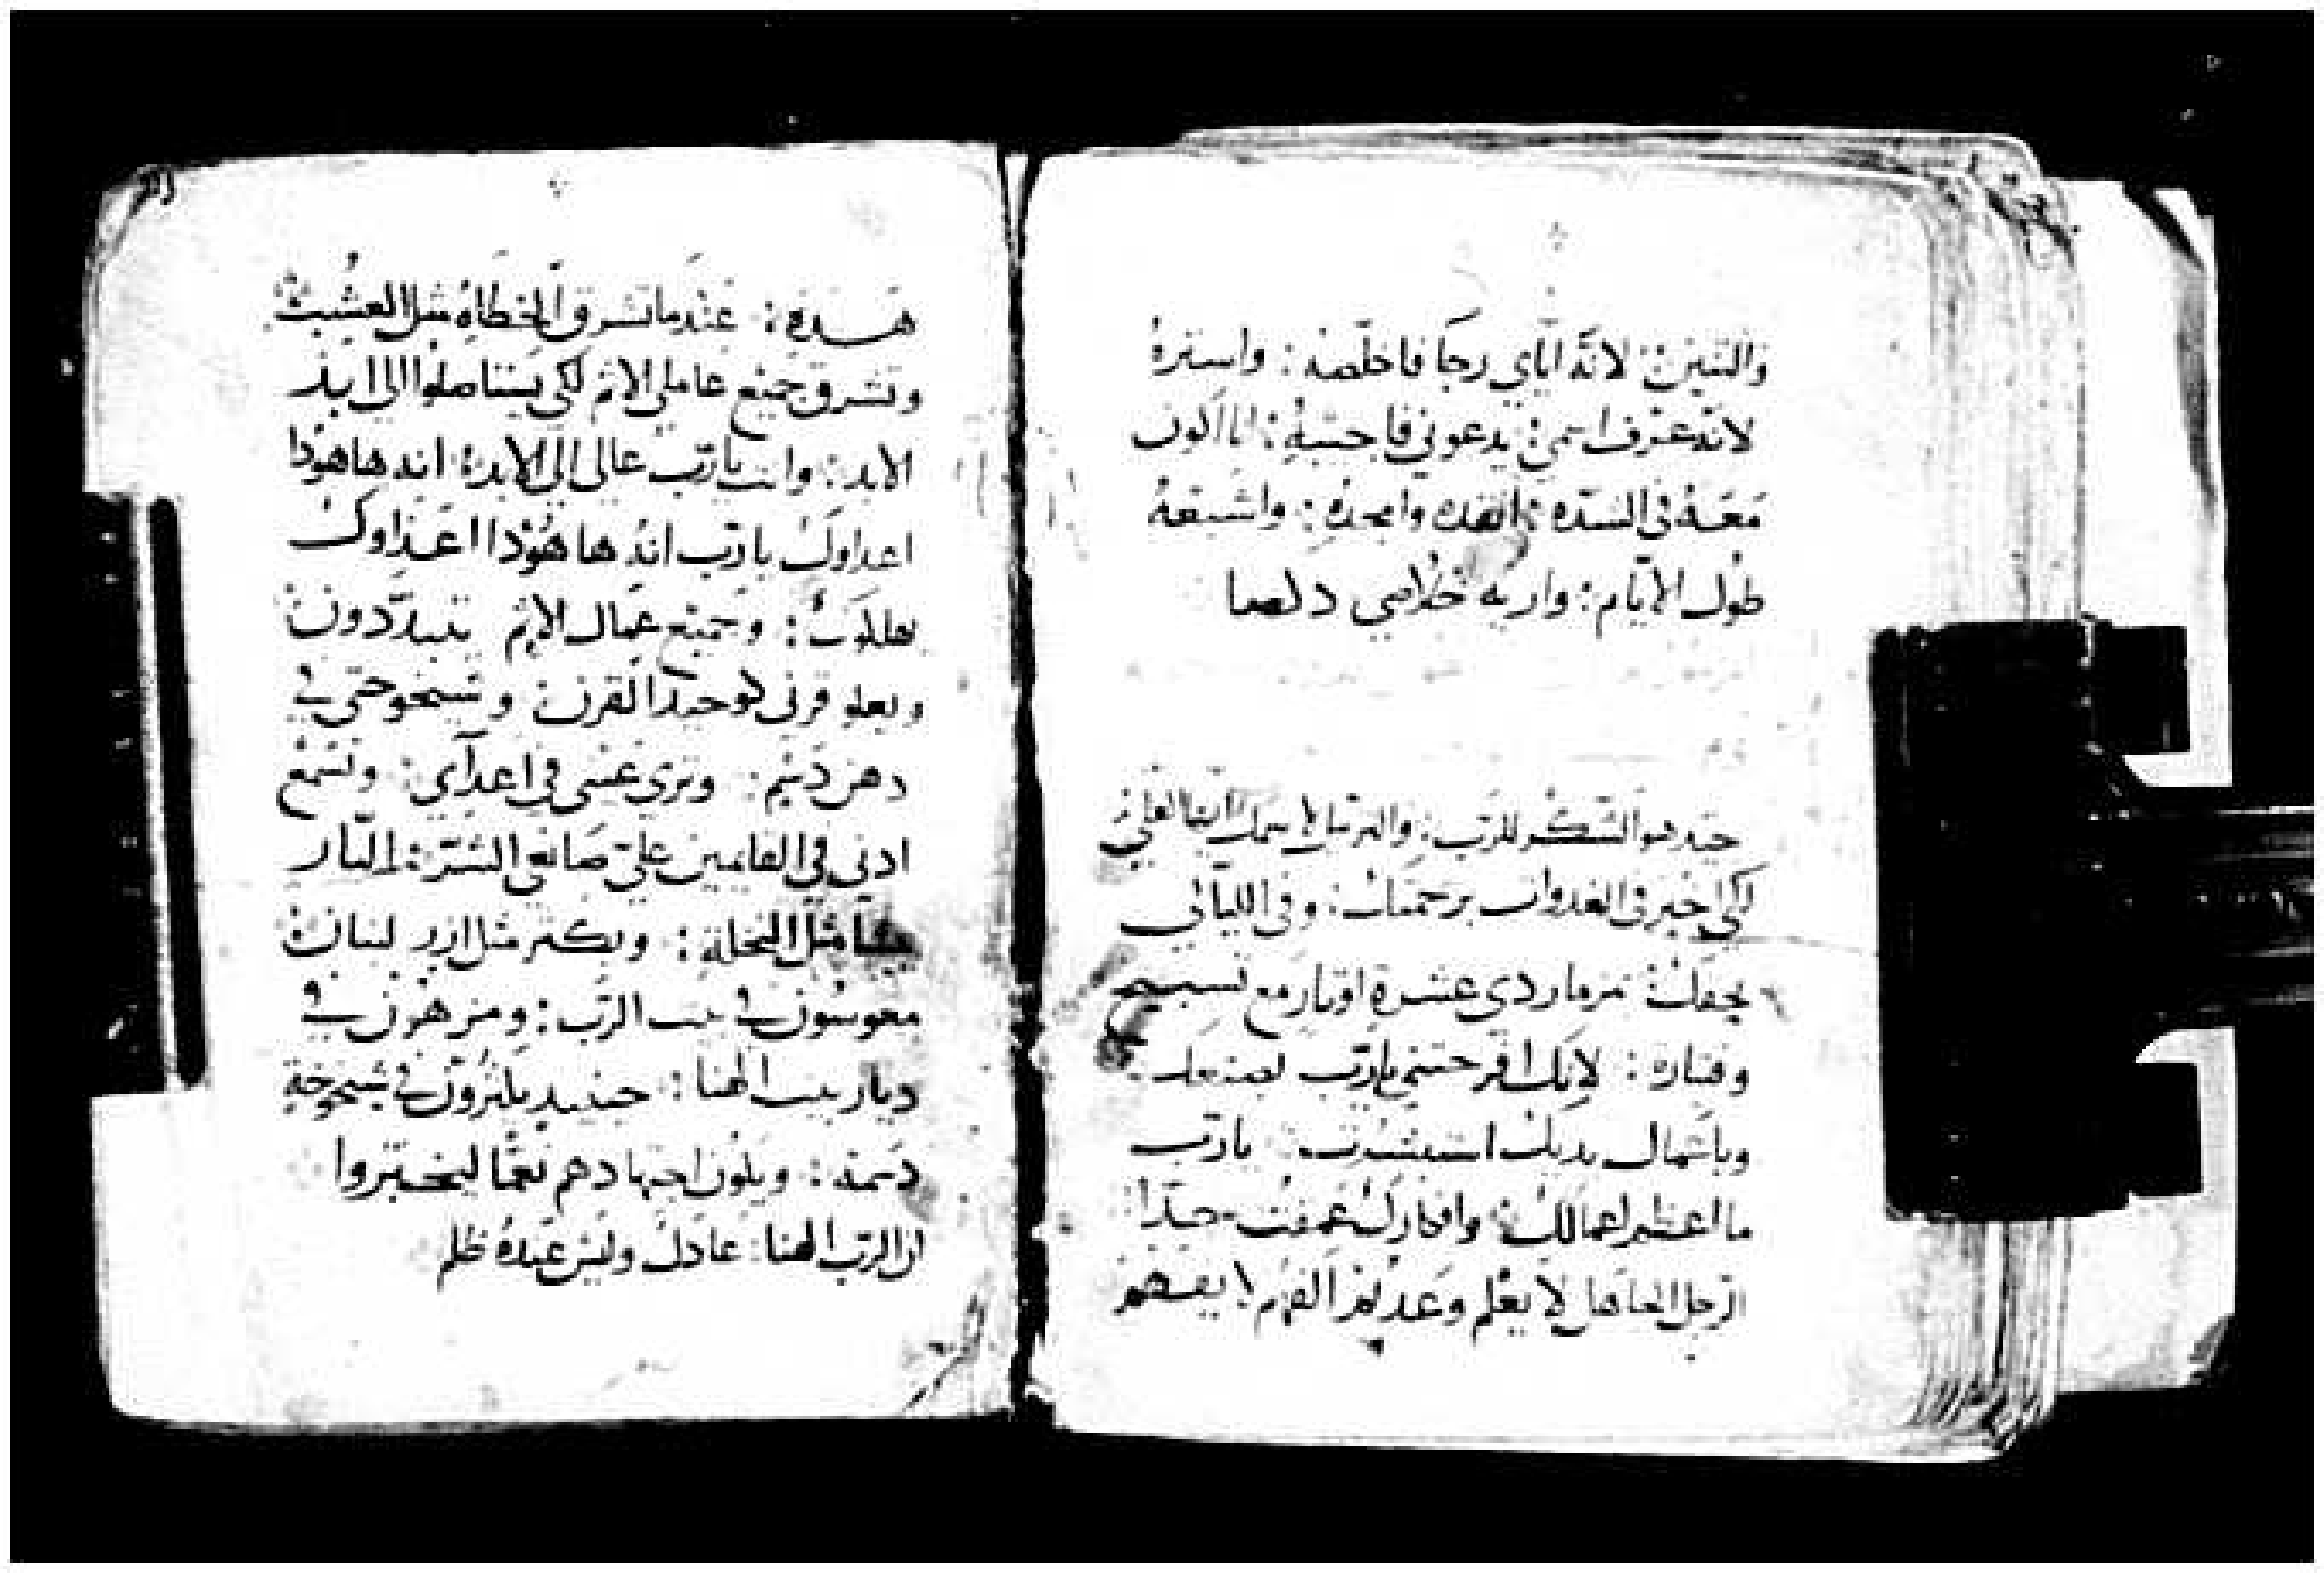 والتنين: لانه اياي رجا فاخلصه: واستره
لانه عرف اسمي: يدعوني فاجيبه: انا اكون
معه في الشده: انقده وامجده: واشبعه
طول الايام: واريه خلاصي
جيد هو الشكر للرب: والترتيل لاسمك ايها العلي
لكي اخبر في الغدوات برحمتك: وفي الليالي
بحقك: مزمار دي عشرة اوتار مع تسبيح
وقتاره: لانك افرحتني يارب بصنعك
وباعمال يديك استبشرت: يارب
ما اعظم اعمالك: وافكارك عمقت جدا:
الرجل الجاهل لا يعلم وعديم الفهم لا يفهم
هده: عندما تشرق الخطاه مثل العشب
وتشرق جميع عاملي الاثم لكي يستاصلوا الي ابد
الابد: وانت يارب عالي الي الابد: انه هاهودا
اعداوك يارب انه هاهودا اعداوك
يهلكون: وجميع عمال الاثم يتبددون
ويعلو قرني كوحيد القرن: وشيخوختي في
دهن دسم: وتري عيني في اعدآي: وتسمع
ادني في القايمين علي صانعي الشر: البار
مثل النخلة: ويكتر مثل ارز لبنان
مغروسون في بيت الرب: ومزهرون في
ديار بيت الهنا: حينيد يكثرون في شيخوخة
دسمه: ويكون اجتهادهم نعما ليخبروا
ان الرب الهنا: عادل وليس عنده ظلم